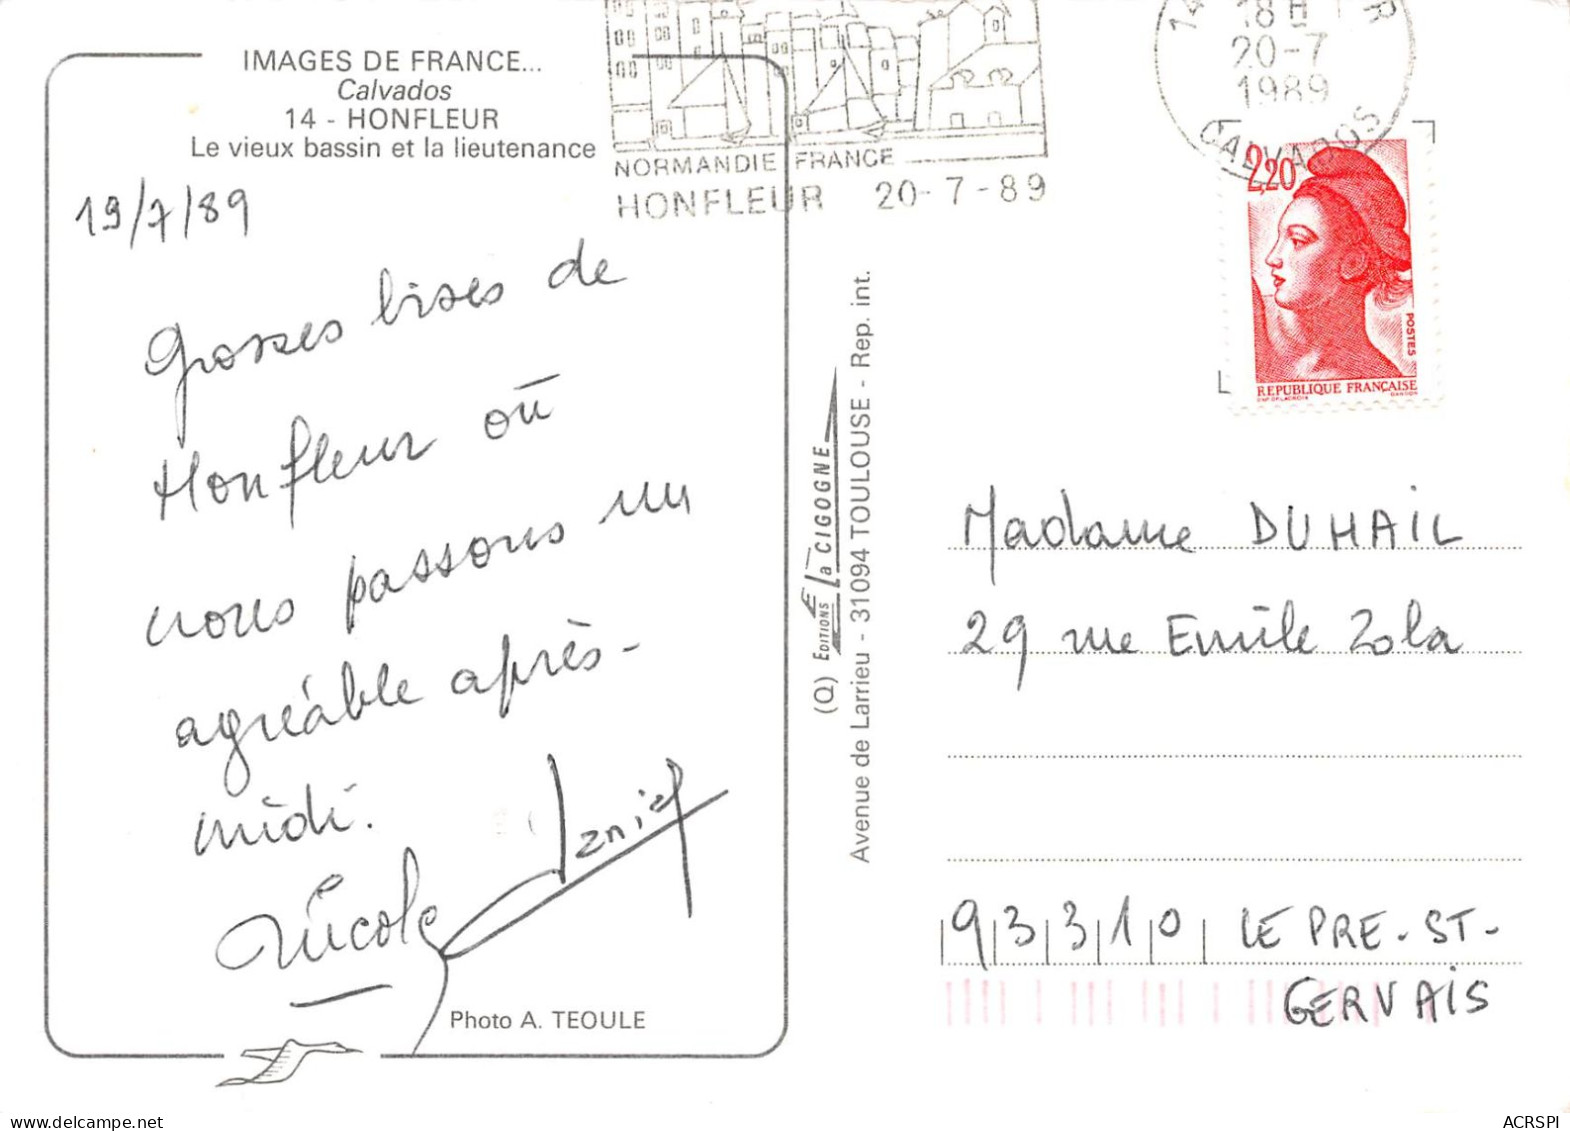 IMAGES DE FRANCE...
Calvados
14 - HONFLEUR
Le vieux bassin et la lieutenance
19/7/89
Grosses bises de
Honfleur où
nous passons un
agréable après-
midi.
Nicole
Photo A. TEOULE
NORMANDIE FRANCE
HONFLEUR 20-7-89
18H
20-7
1989
CALVADOS
2,20
POSTES
REPUBLIQUE FRANÇAISE
(Q) EDITIONS La CIGOGNE
Avenue de Larrieu - 31094 TOULOUSE - Rep. int.
Madame DUHAIL
29 rue Emile Zola
93310 LE PRE-ST-
GERVAIS
ACRSPI